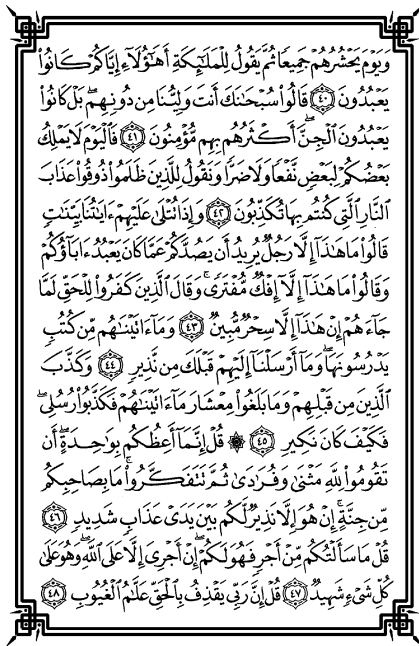 وَيَوْمَ يَحْشُرُهُمْ جَمِيعًا ثُمَّ يَقُولُ لِلْمَلَٰٓئِكَةِ أَهَٰٓؤُلَآءِ إِيَّاكُمْ كَانُوا۟
يَعْبُدُونَ ﴿٤٠﴾ قَالُوا۟ سُبْحَٰنَكَ أَنتَ وَلِيُّنَا مِن دُونِهِم ۖ بَلْ كَانُوا۟
يَعْبُدُونَ ٱلْجِنَّ ۖ أَكْثَرُهُم بِهِم مُّؤْمِنُونَ ﴿٤١﴾ فَٱلْيَوْمَ لَا يَمْلِكُ
بَعْضُكُمْ لِبَعْضٍ نَّفْعًا وَلَا ضَرًّا وَنَقُولُ لِلَّذِينَ ظَلَمُوا۟ ذُوقُوا۟ عَذَابَ
ٱلنَّارِ ٱلَّتِى كُنتُم بِهَا تُكَذِّبُونَ ﴿٤٢﴾ وَإِذَا تُتْلَىٰ عَلَيْهِمْ ءَايَٰتُنَا بَيِّنَٰتٍ
قَالُوا۟ مَا هَٰذَآ إِلَّا رَجُلٌ يُرِيدُ أَن يَصُدَّكُمْ عَمَّا كَانَ يَعْبُدُ ءَابَآؤُكُمْ
وَقَالُوا۟ مَا هَٰذَآ إِلَّآ إِفْكٌ مُّفْتَرًى ۚ وَقَالَ ٱلَّذِينَ كَفَرُوا۟ لِلْحَقِّ لَمَّا
جَآءَهُمْ إِنْ هَٰذَآ إِلَّا سِحْرٌ مُّبِينٌ ﴿٤٣﴾ وَمَآ ءَاتَيْنَٰهُم مِّن كُتُبٍ
يَدْرُسُونَهَا ۖ وَمَآ أَرْسَلْنَآ إِلَيْهِمْ قَبْلَكَ مِن نَّذِيرٍ ﴿٤٤﴾ وَكَذَّبَ
ٱلَّذِينَ مِن قَبْلِهِمْ وَمَا بَلَغُوا۟ مِعْشَارَ مَآ ءَاتَيْنَٰهُمْ فَكَذَّبُوا۟ رُسُلِى ۖ
فَكَيْفَ كَانَ نَكِيرِ ﴿٤٥﴾ ۞ قُلْ إِنَّمَآ أَعِظُكُم بِوَٰحِدَةٍ ۖ أَن
تَقُومُوا۟ لِلَّهِ مَثْنَىٰ وَفُرَٰدَىٰ ثُمَّ تَتَفَكَّرُوا۟ ۚ مَا بِصَاحِبِكُم
مِّن جِنَّةٍ ۚ إِنْ هُوَ إِلَّا نَذِيرٌ لَّكُم بَيْنَ يَدَىْ عَذَابٍ شَدِيدٍ ﴿٤٦﴾
قُلْ مَا سَأَلْتُكُم مِّنْ أَجْرٍ فَهُوَ لَكُمْ ۖ إِنْ أَجْرِىَ إِلَّا عَلَى ٱللَّهِ ۖ وَهُوَ عَلَىٰ
كُلِّ شَىْءٍ شَهِيدٌ ﴿٤٧﴾ قُلْ إِنَّ رَبِّى يَقْذِفُ بِٱلْحَقِّ عَلَّٰمُ ٱلْغُيُوبِ ﴿٤٨﴾